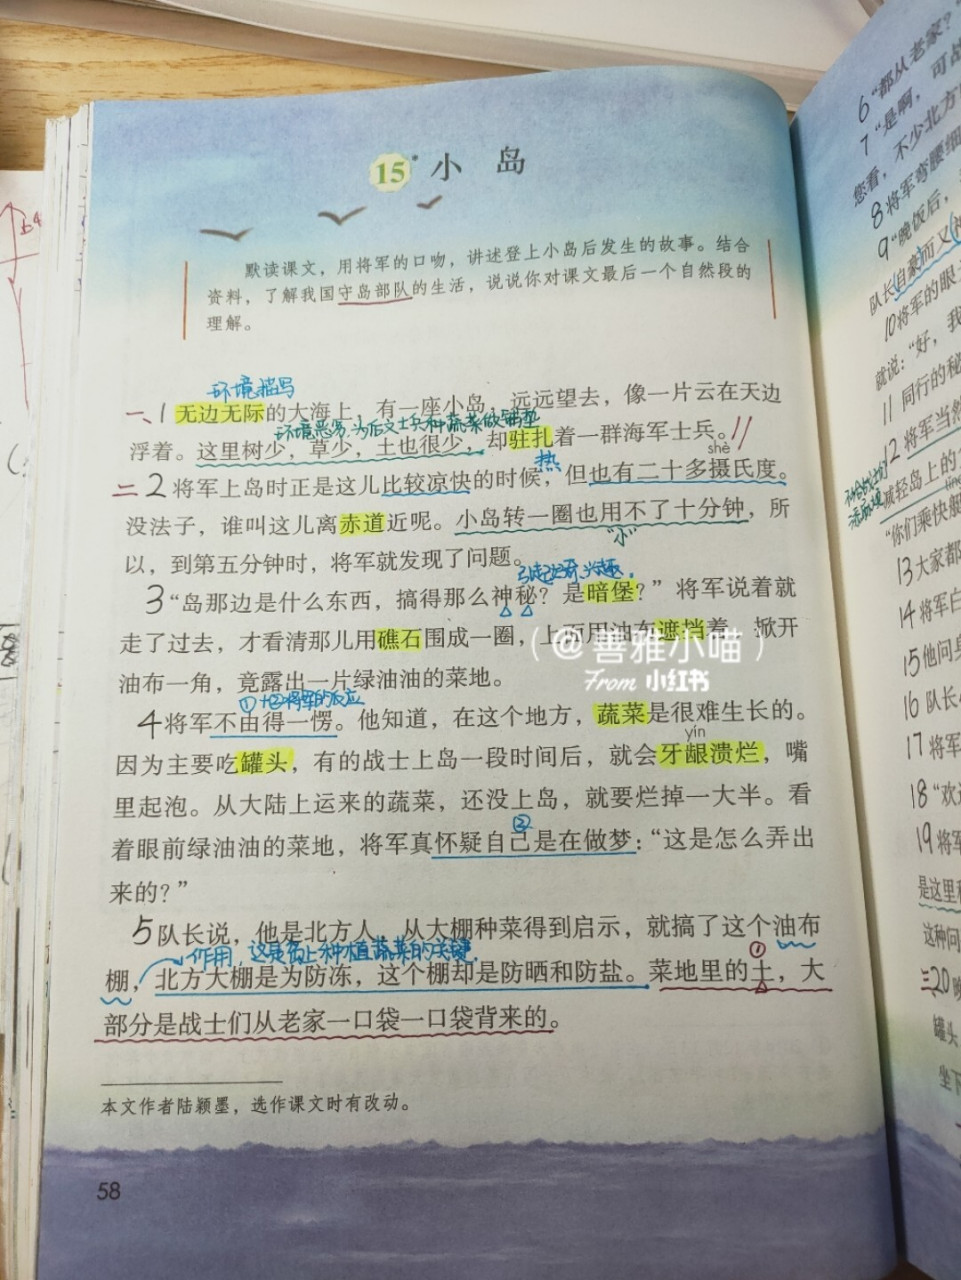 15 小岛
默读课文，用将军的口吻，讲述登上小岛后发生的故事。结合
资料，了解我国守岛部队的生活，说说你对课文最后一个自然段的
理解。
环境描写
一、1 无边无际的大海上，有一座小岛，远远望去，像一片云在天边
环境恶劣，为后文士兵种蔬菜做铺垫
浮着。这里树少，草少，土也很少，却驻扎着一群海军士兵。
shè
热
二 2 将军上岛时正是这儿比较凉快的时候，但也有二十多摄氏度。
没法子，谁叫这儿离赤道近呢。小岛转一圈也用不了十分钟，所
"小"
以，到第五分钟时，将军就发现了问题。
引起读者兴趣。
3 “岛那边是什么东西，搞得那么神秘？是暗堡？”将军说着就
走了过去，才看清那儿用礁石围成一圈，上面用油布遮挡着。掀开
油布一角，竟露出一片绿油油的菜地。
①将军的反应
4 将军不由得一愣。他知道，在这个地方，蔬菜是很难生长的。
yín
因为主要吃罐头，有的战士上岛一段时间后，就会牙龈溃烂，嘴
里起泡。从大陆上运来的蔬菜，还没上岛，就要烂掉一大半。看
②
着眼前绿油油的菜地，将军真怀疑自己是在做梦：“这是怎么弄出
来的？”
5 队长说，他是北方人，从大棚种菜得到启示，就搞了这个油布
作用，这是岛上种植蔬菜的关键。
①
棚，北方大棚是为防冻，这个棚却是防晒和防盐。菜地里的土，大
部分是战士们从老家一口袋一口袋背来的。
本文作者陆颖墨，选作课文时有改动。
58
（@善雅小喵）
From 小红书
6 “都从老家？
7 “是啊，可战
您看，不少北方
8 将军弯腰细
9 “晚饭后，
队长自豪而又
10 将军的眼
就说：“好，我
11 同行的秘
12 将军当然
减轻岛上的
“你们乘快艇
13 大家都
14 将军白
15 他问身
16 队长
17 将军
18 “欢
19 将军
是这里
这种问
三、20 晚
罐头
坐下